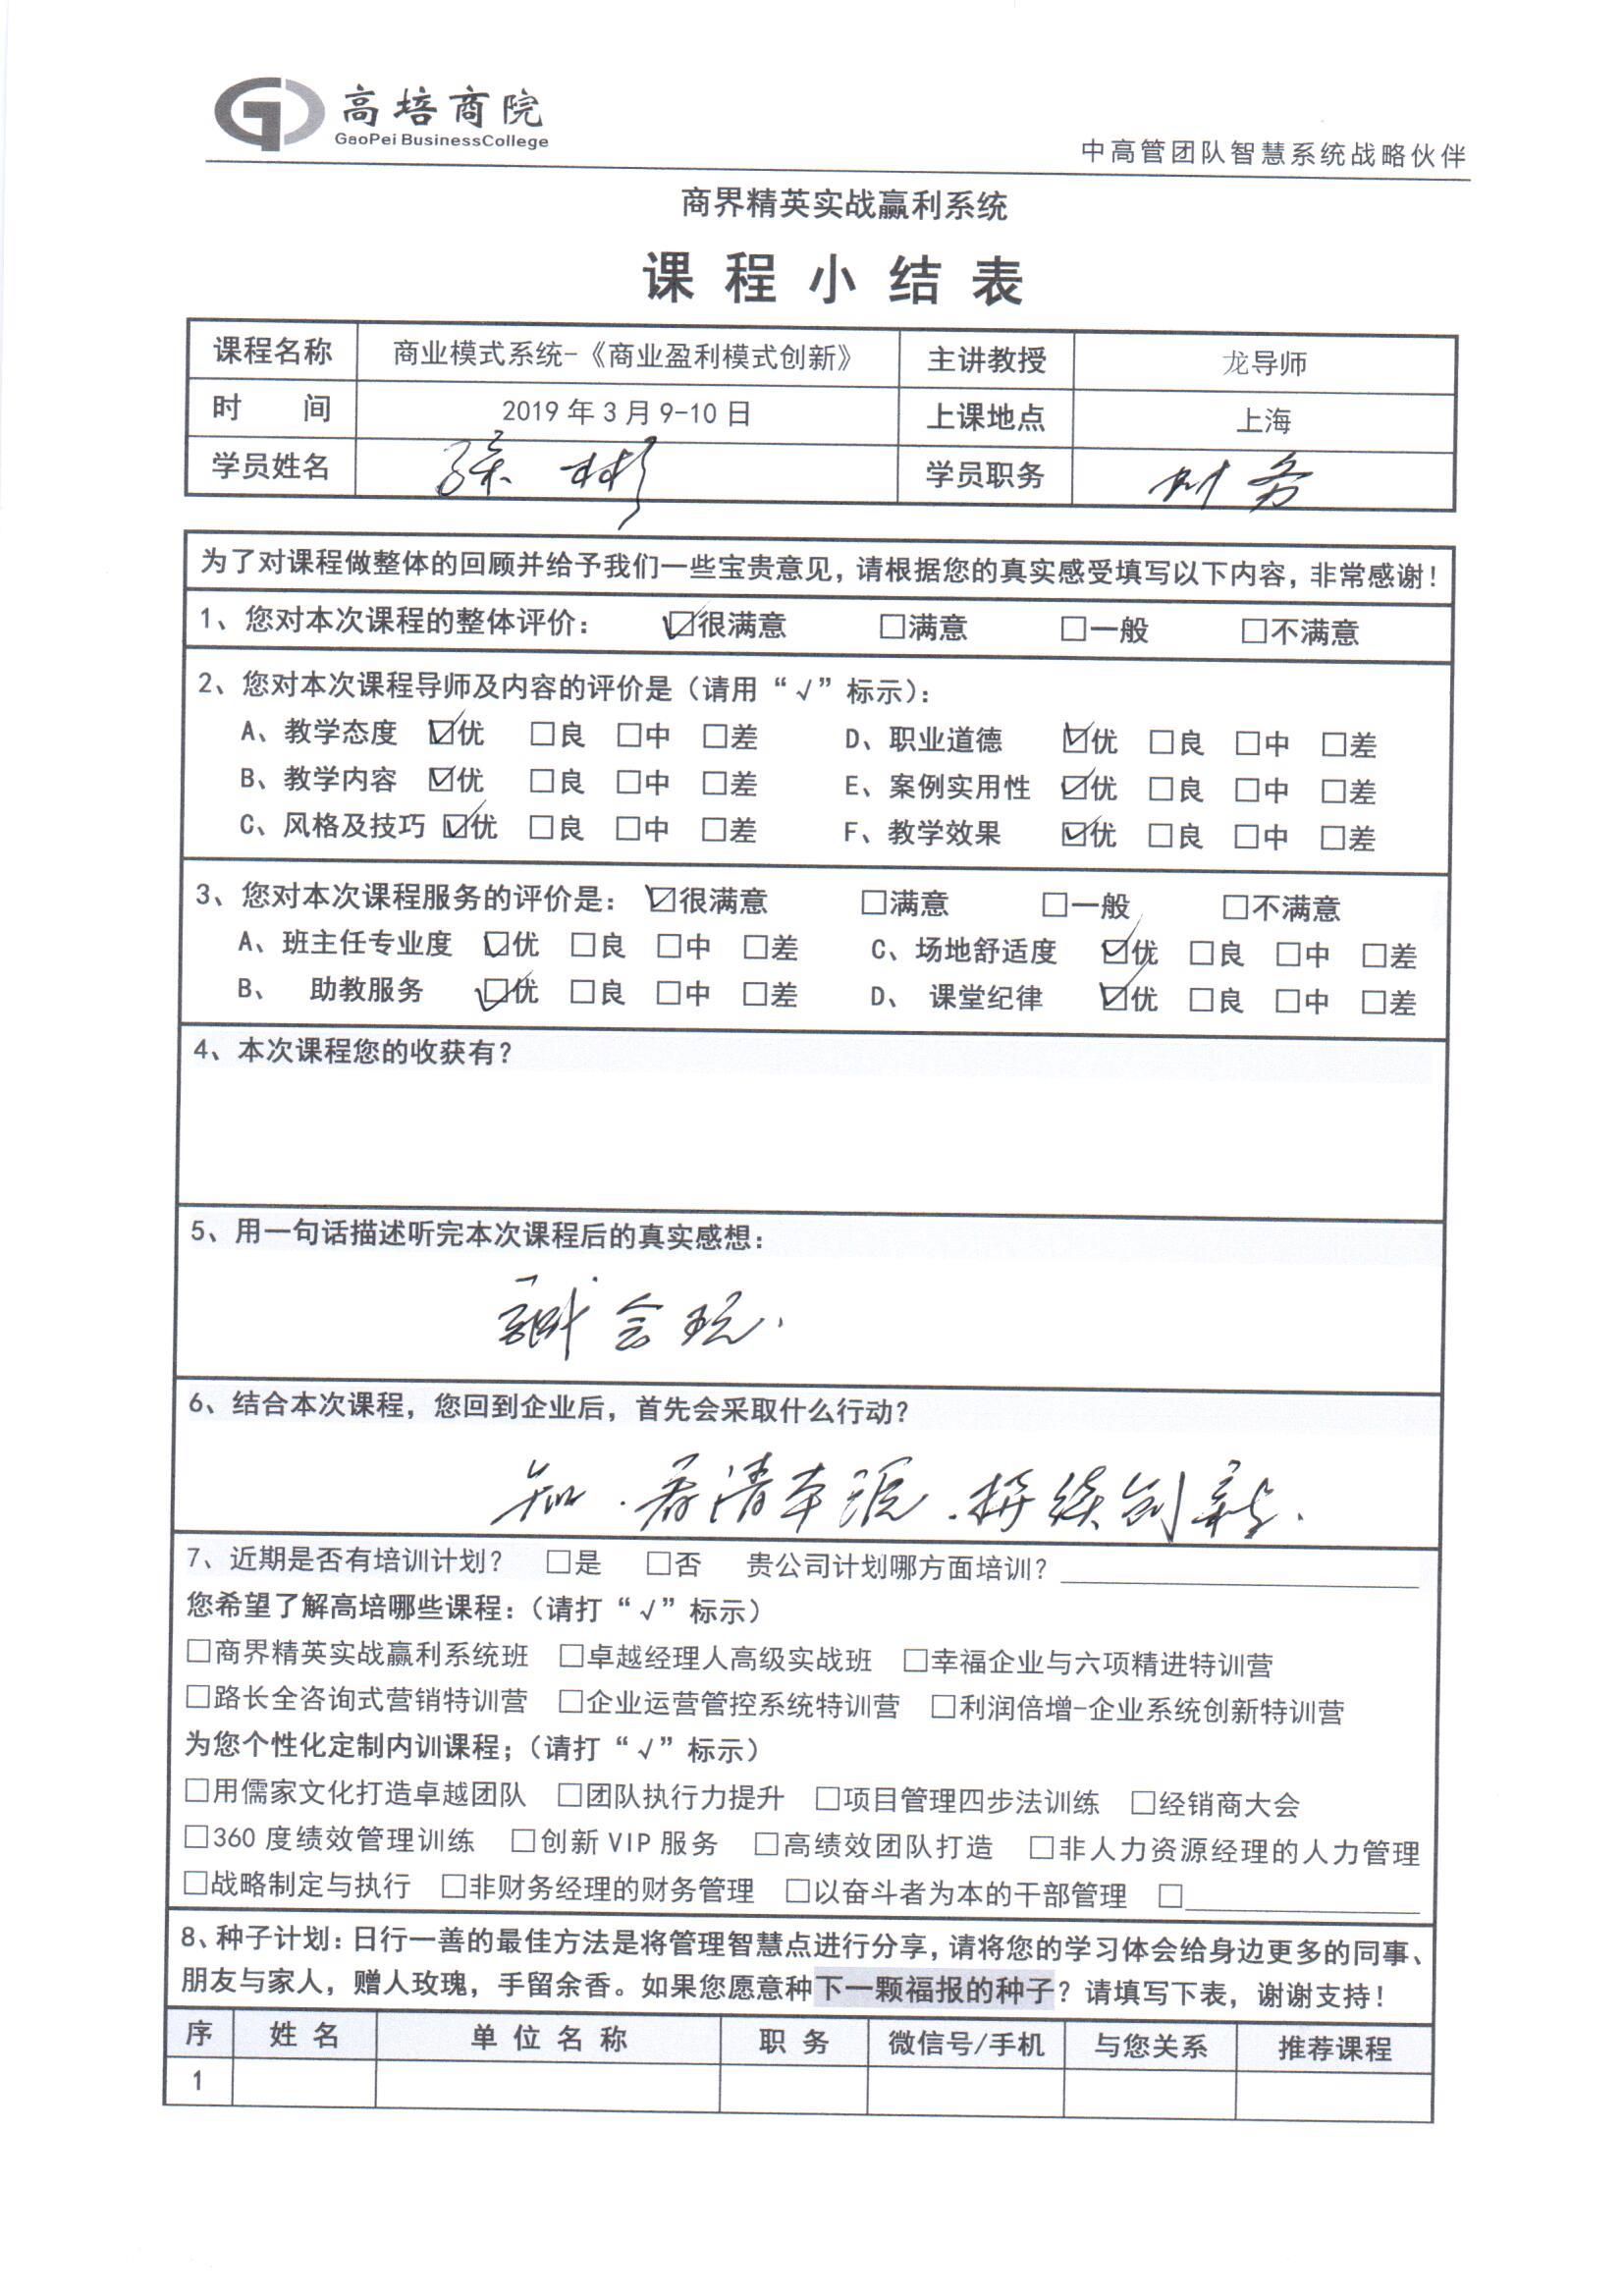 高培商院
GaoPei BusinessCollege
中高管团队智慧系统战略伙伴
商界精英实战赢利系统
课程小结表
课程名称 商业模式系统-《商业盈利模式创新》 主讲教授 龙导师
时 间 2019年3月9-10日 上课地点 上海
学员姓名 彬 学员职务 财务
为了对课程做整体的回顾并给予我们一些宝贵意见，请根据您的真实感受填写以下内容，非常感谢！
1、您对本次课程的整体评价： ☑很满意 □满意 □一般 □不满意
2、您对本次课程导师及内容的评价是（请用“√”标示）：
A、教学态度 ☑优 □良 □中 □差 D、职业道德 ☑优 □良 □中 □差
B、教学内容 ☑优 □良 □中 □差 E、案例实用性 ☑优 □良 □中 □差
C、风格及技巧 ☑优 □良 □中 □差 F、教学效果 ☑优 □良 □中 □差
3、您对本次课程服务的评价是： ☑很满意 □满意 □一般 □不满意
A、班主任专业度 ☑优 □良 □中 □差 C、场地舒适度 ☑优 □良 □中 □差
B、 助教服务 ☑优 □良 □中 □差 D、 课堂纪律 ☑优 □良 □中 □差
4、本次课程您的收获有？
5、用一句话描述听完本次课程后的真实感想：
会玩.
6、结合本次课程，您回到企业后，首先会采取什么行动？
看清本源.持续创新.
7、近期是否有培训计划？ □是 □否 贵公司计划哪方面培训？
您希望了解高培哪些课程：（请打“√”标示）
□商界精英实战赢利系统班 □卓越经理人高级实战班 □幸福企业与六项精进特训营
□路长全咨询式营销特训营 □企业运营管控系统特训营 □利润倍增-企业系统创新特训营
为您个性化定制内训课程；（请打“√”标示）
□用儒家文化打造卓越团队 □团队执行力提升 □项目管理四步法训练 □经销商大会
□360度绩效管理训练 □创新VIP服务 □高绩效团队打造 □非人力资源经理的人力管理
□战略制定与执行 □非财务经理的财务管理 □以奋斗者为本的干部管理 □
8、种子计划：日行一善的最佳方法是将管理智慧点进行分享，请将您的学习体会给身边更多的同事、
朋友与家人，赠人玫瑰，手留余香。如果您愿意种下一颗福报的种子？请填写下表，谢谢支持！
序 姓名 单位名称 职务 微信号/手机 与您关系 推荐课程
1